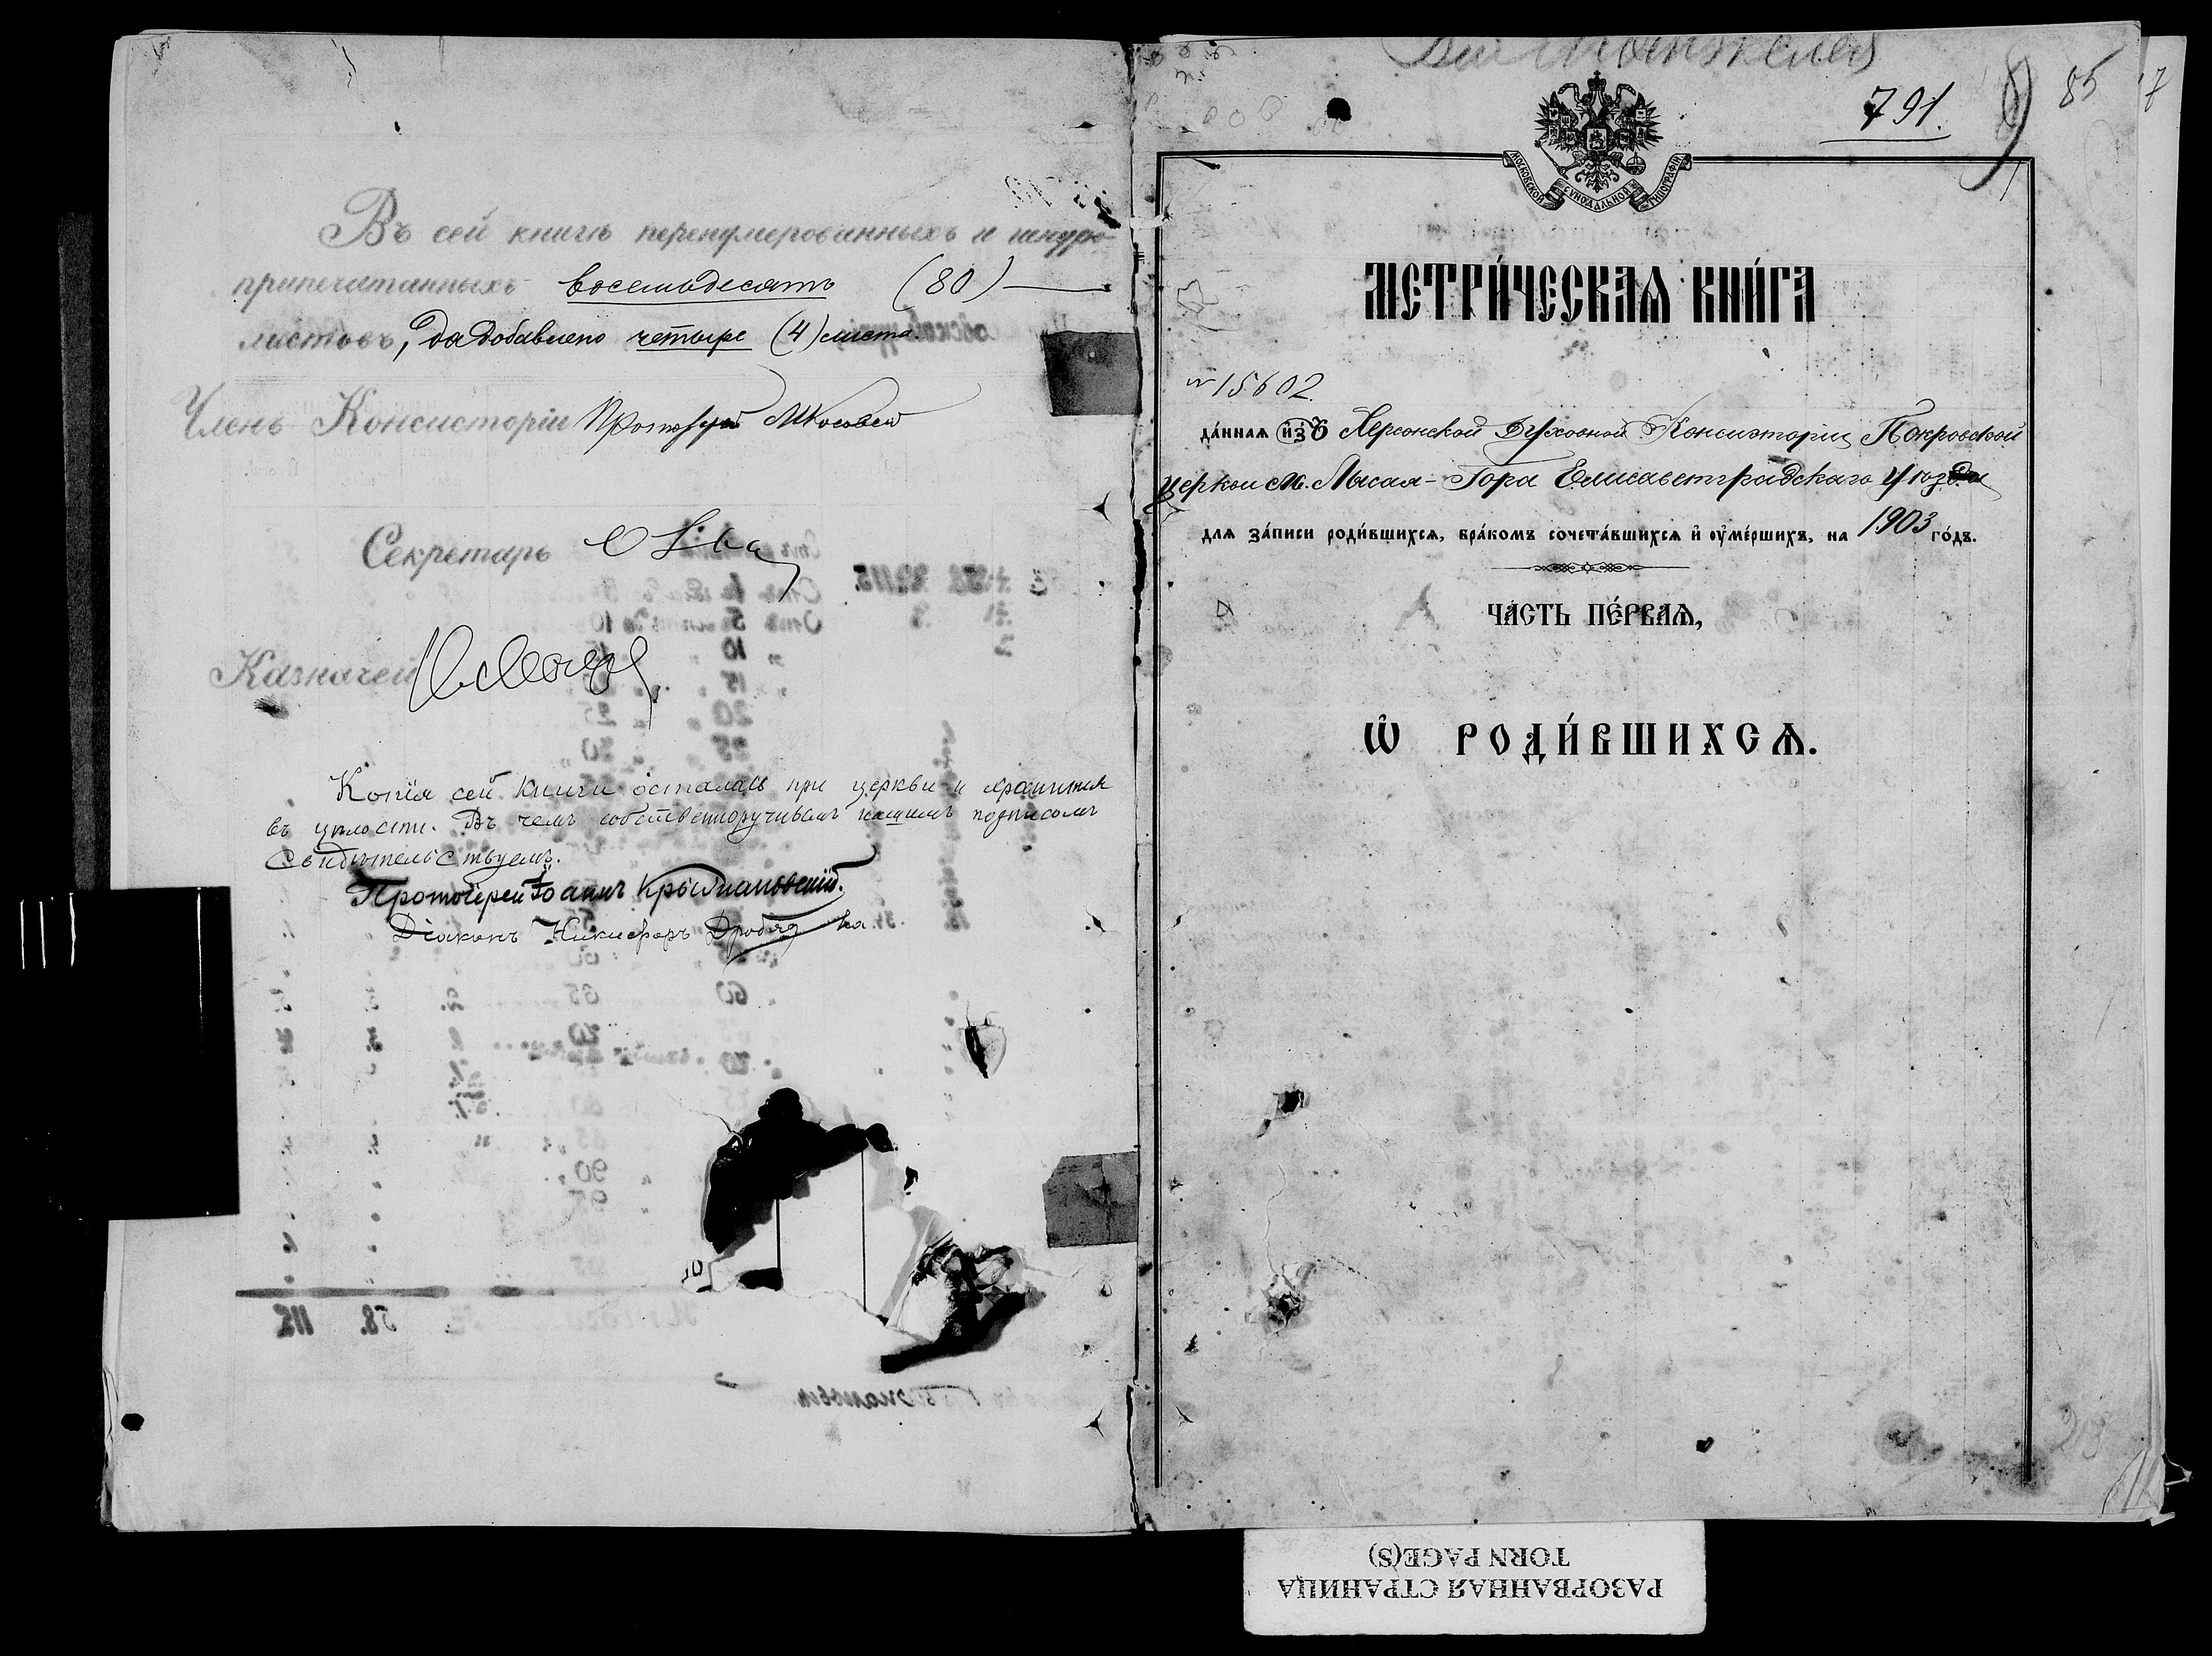 Въ сей книгѣ перенумерованныхъ и шнуро-
припечатанныхъ восемьдесятъ (80)
листовъ, да добавлено четыре (4) листа.
Членъ Консисторіи
Секретарь
Казначей
Копія сей книги осталась при церкви и хранится
въ цѣлости. Въ чемъ собственноручнымъ нашимъ подписомъ
Свидѣтельствуемъ.
Протоіерей Іоаннъ Крыжановскій.
Діаконъ Никифоръ
791.
85
МОСКОВСКОЙ СѴНОДАЛЬНОЙ ТИПОГРАФІИ
МЕТРИ́ЧЕСКАѦ КНИ́ГА
№ 15602.
да́ннаѧ и҆зъ Херсонской Духовной Консисторіи Покровской
церкви м. Лысая-Гора Елисаветградскаго уѣзда
для за́писи роди́вшихсѧ, бра́комъ сочета́вшихсѧ и҆ ᲂу҆ме́ршихъ, на 1903 го́дъ.
ЧА́СТЬ ПЕ́РВАѦ,
Ѡ҆ РОДИ́ВШИХСѦ.
РАЗОРВАННАЯ СТРАНИЦА
TORN PAGE(S)